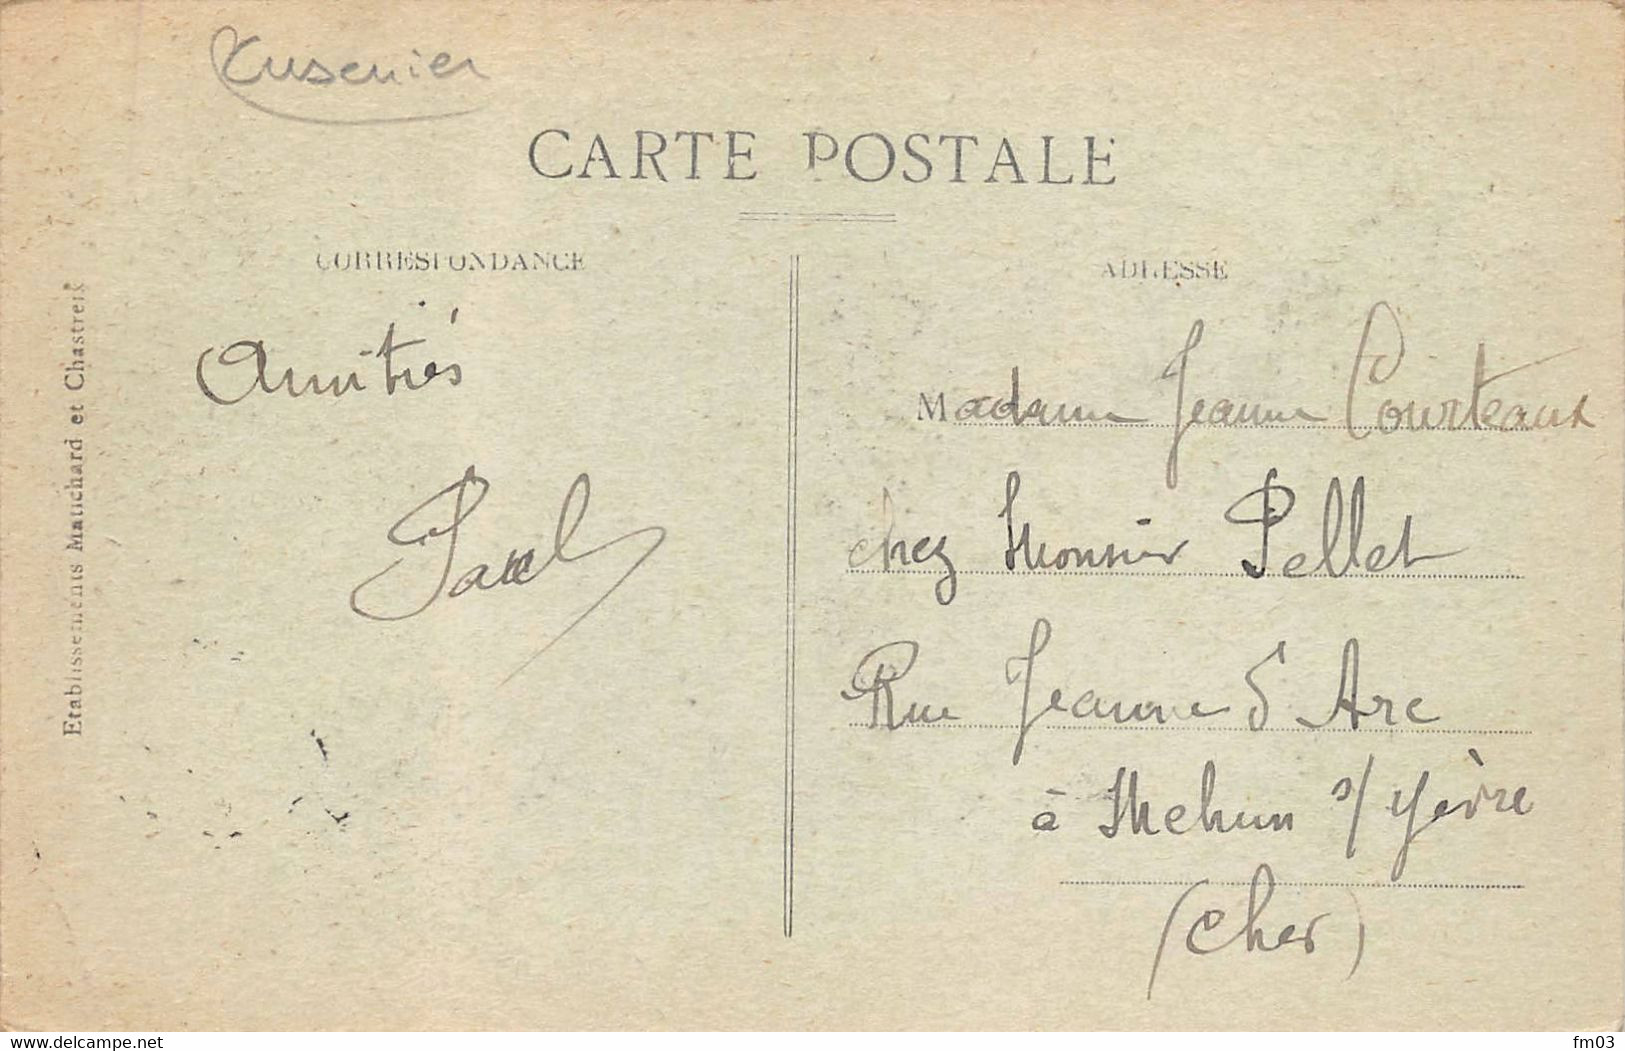 Cusenier
CARTE POSTALE
CORRESPONDANCE
Amitiés
Etablissements Matichard et Chastreix
ADRESSE
Madame Jeanne Courteaux
chez Monsieur Pellet
Rue Jeanne d'Arc
à Mehun s/ Yèvre
(Cher)
www.delcampe.net
fm03